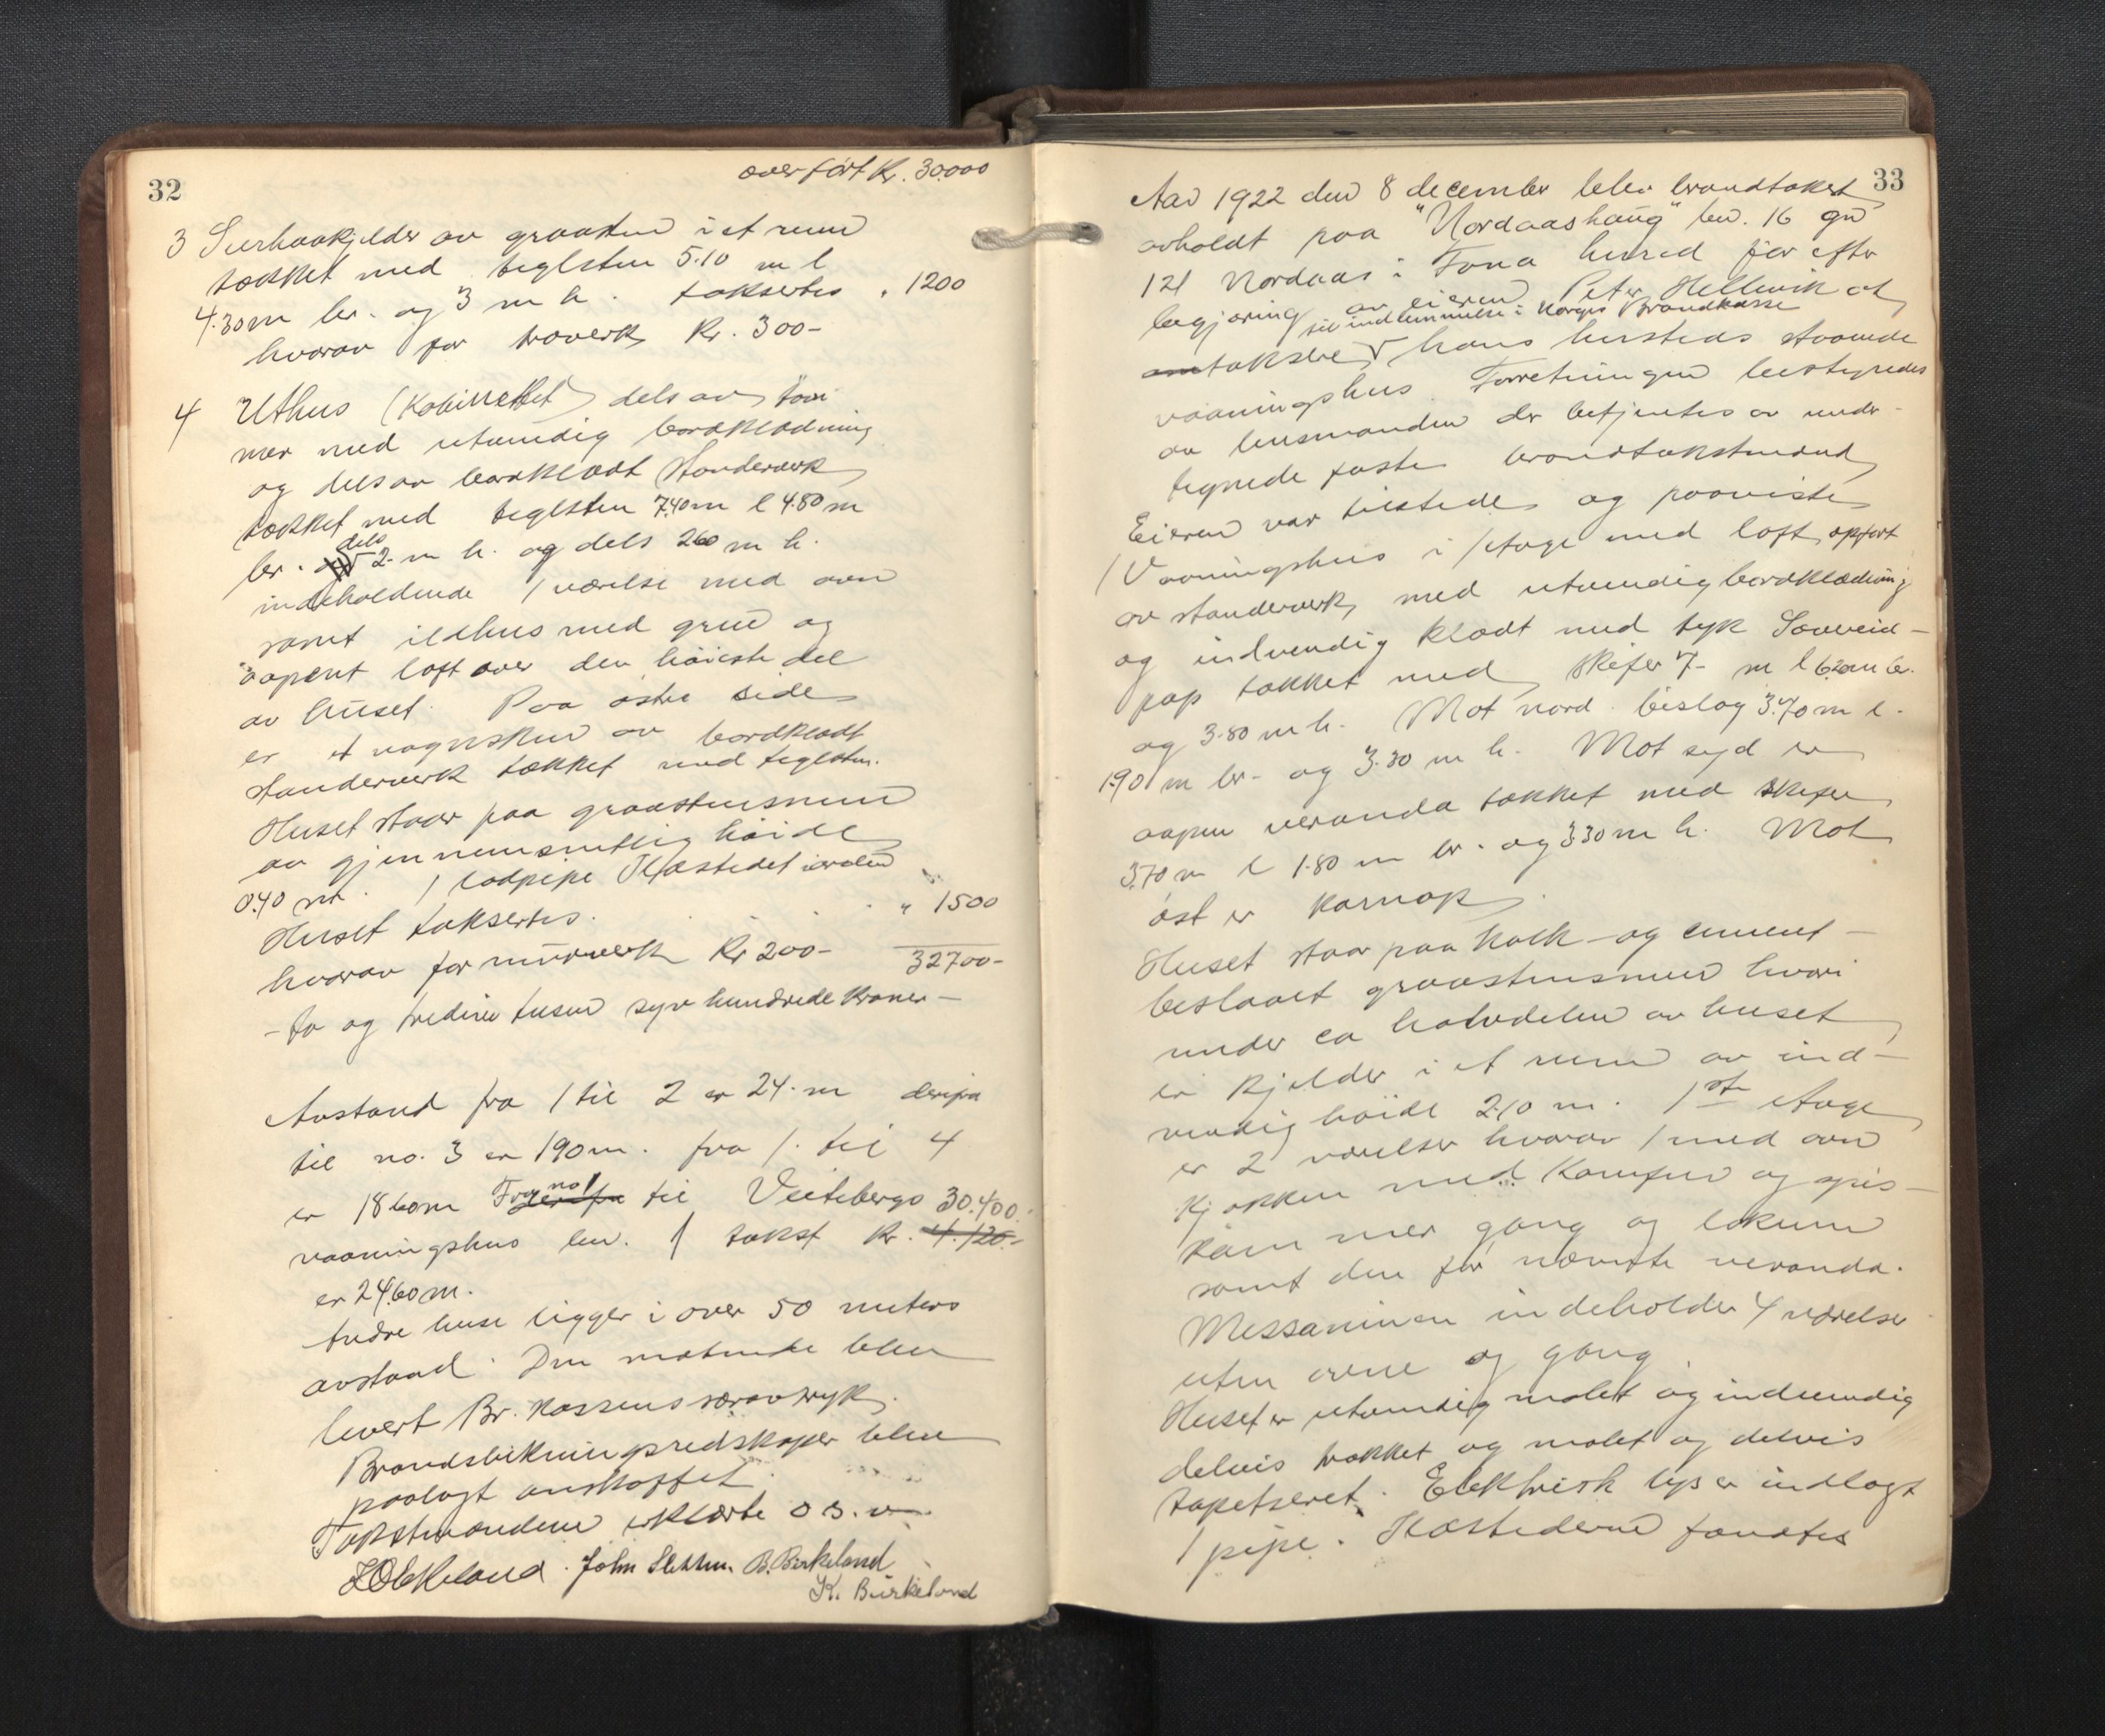 32
overført Kr. 30.000
3 Surhaakjelder av graasten i et rum
tækket med teglsten 5.10 m l
4.30 m br. og 3 m h. taksertes " 1200
hvorav for træverk Kr. 300-
4 Uthus (Kabinettet) dels av tøm
mer med utvendig bordklædning
og dels av bordklædt standerverk
tækket med teglsten 7.40 m l 4.80 m
br. dels 2- m h. og dels 260 m h.
indeholdende 1 værelse med ovn
samt ildhus med grue og
aapent loft over den høieste del
av huset. Paa østre side
er et vognskur av bordklædt
standerverk tækket med teglsten.
Huset staar paa graastensmur
av gjennemsnitlig høide
0.40 m. 1 lodpipe Ildstedet
Huset taksertes. " 1500
hvorav for murverk Kr 200- 32700-
- to og tredive tusen syv hundrede kroner -
Avstand fra 1 til 2 er 24. m derifra
til no. 3 er 190 m. fra 1. til 4
er 18 60 m Fra no 1 derifra til Veitebergs 30.400.
vaaningshus bn. 1 takst Kr. 4.120.-
er 24.60 m.
Andre huse ligger i over 50 meters
avstand. Den møtende blev
levert Br. Kassens særavtryk.
Brandslukningsredskaper blev
paalagt anskaffet.
Takstmændene erklærte o s. v.
John Sletten. B. Birkeland
K. Birkeland
33
Aar 1922 den 8 december blev brandtakst
avholdt paa "Nordaashaug" bn. 16 gn
121 Nordaas i Fana herred før efter
begjæring av eieren Peter Hellevik at
til indlemmelse i Norges Brandkasse
omtaksere hans hersteds staaende
vaaningshus. Forretningen bestyredes
av lensmanden der betjentes av under-
tegnede faste brandtakstmænd
Eieren var tilstede og paaviste
1 Vaaningshus i 1 etage med loft opført
av standerverk med utvendig bordklædning
og indvendig klædt med tyk
pap tækket med skifer 7- m l 6.20 m br.
og 3.80 m h. Mot nord bislag 3.70 m l.
1.90 m br. og 3.30 m h. Mot syd er
aapen veranda tækket med skifer
3.70 m l 1.80 m br. og 3.30 m h. Mot
øst er karnap.
Huset staar paa kalk- og cement-
beslaaet graastensmur hvori
under ca halvdelen av huset
er kjelder i et rum av ind-
vendig høide 2.10 m. 1ste etage
er 2 værelser hvorav 1 med ovn
kjøkken med komfur og spis-
kammer gang og lokum
samt den før nævnte veranda.
Messaninen indeholder 4 værelser
uten ovne og gang
Huset er utvendig malet og indvendig
delvis trukket og malet og delvis
tapetseret. Elektrisk lys er indlagt
1 pipe. Ildstederne fandtes